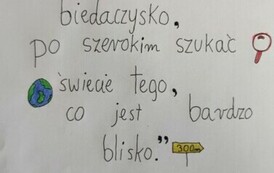 biedaczysko,
po szerokim szukać
świecie tego,
co jest bardzo
blisko.”
300m